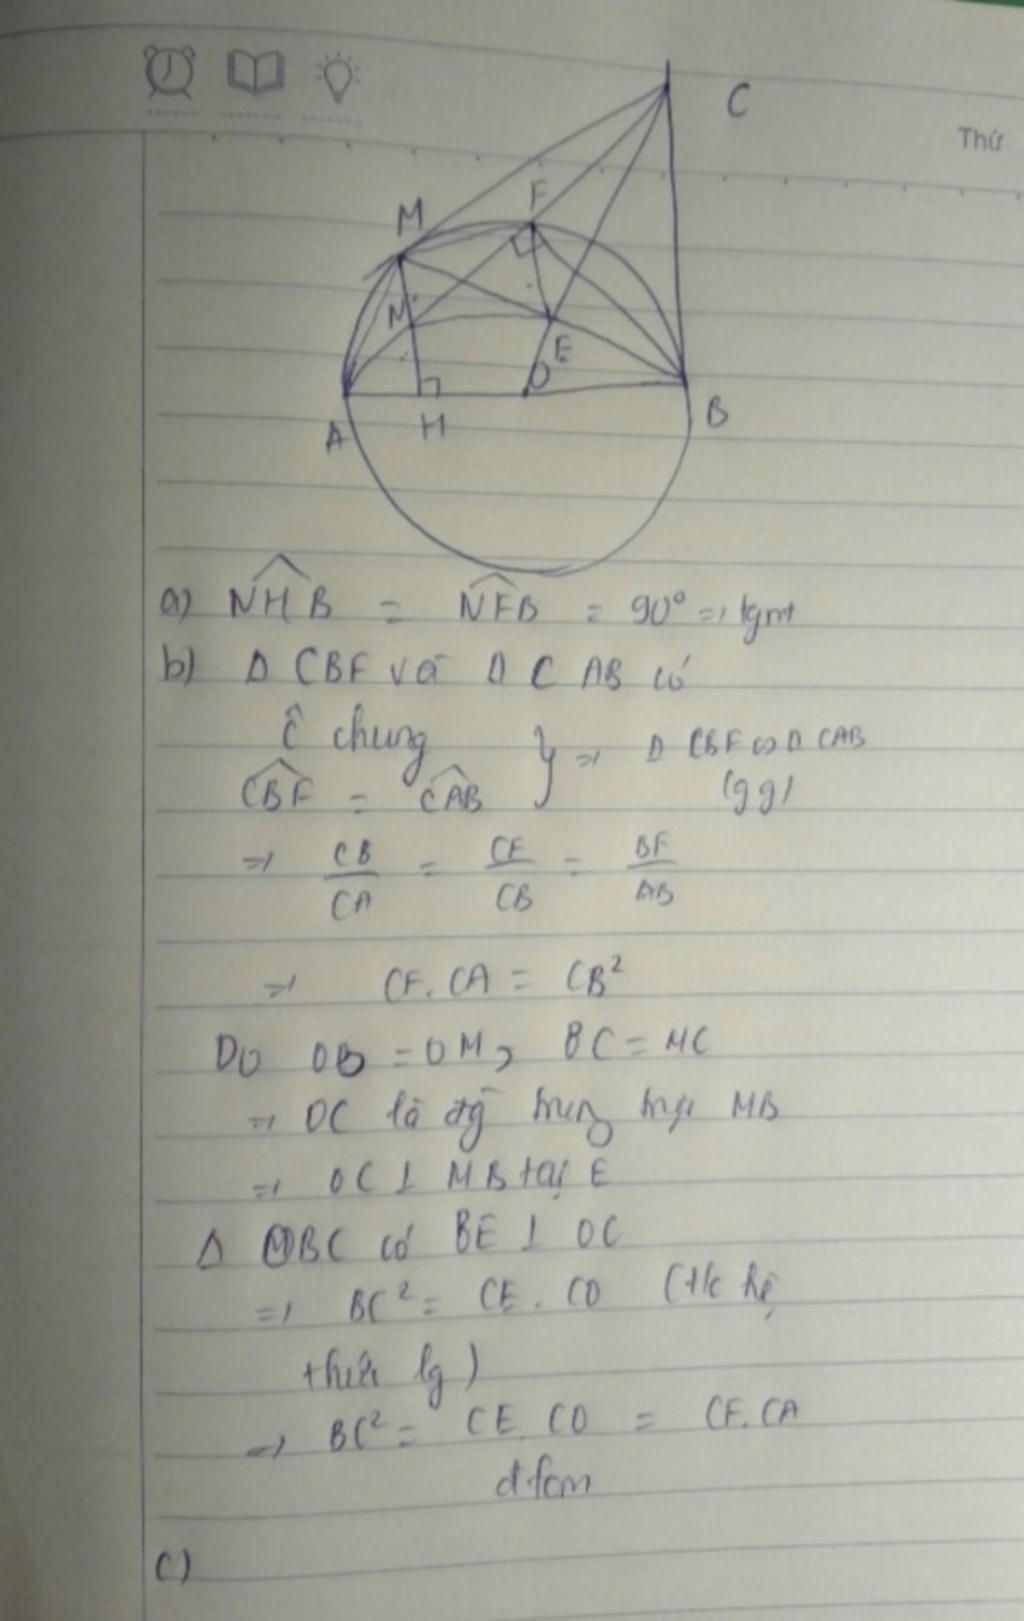 Thứ
C
M
F
N
E
O
A
H
B
a) NHB = NFB = 90° => tgnt
b) Δ CBF và Δ CAB có
Ĉ chung
CBF = CAB } => Δ CBF ∽ Δ CAB
(gg)
=> CB/CA = CF/CB = BF/AB
=> CF.CA = CB²
Do OB = OM, BC = MC
=> OC là đg trung trực MB
=> OC ⊥ MB tại E
Δ OBC có BE ⊥ OC
=> BC² = CE.CO (th hệ
thức lg)
=> BC² = CE.CO = CF.CA
đfcm
c)